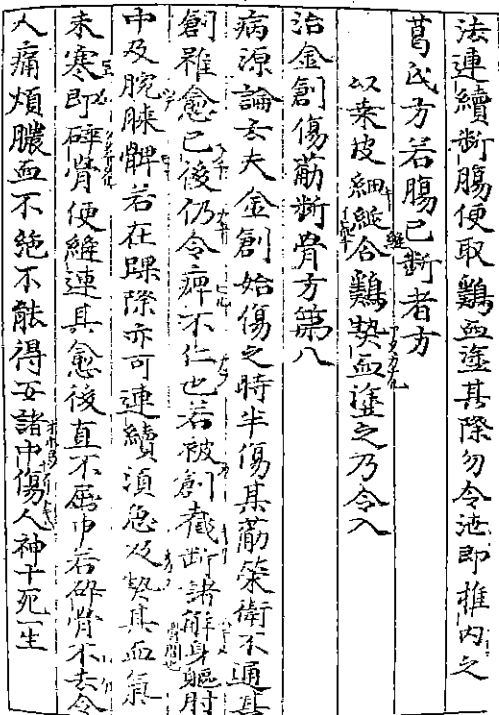 法連續斷腸便取鷄血塗其際勿令泄即推內之
葛氏方若腸已斷者方
以桒皮細縫合鷄熱血塗之乃令入
治金創傷荕斷骨方第八
病源論云夫金創始傷之時半傷其荕榮衛不通其
創雖愈已後仍令痺不仁也若被創截斷諸解身軀肘
中及腕膝髀若在踝際亦可連續湏急及熱其血氣
未寒即碎骨便縫連其愈後直不屈申若碎骨不去令
人痛煩膿血不絶不能得安諸中傷人神十死一生